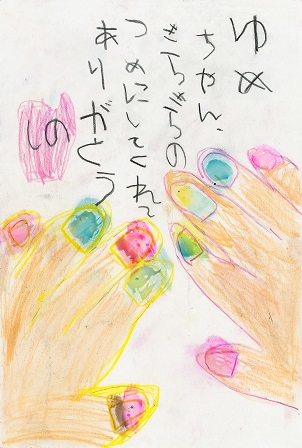 ゆめ
ちゃん、
きらきらの
つめにしてくれて
ありがとう
しの